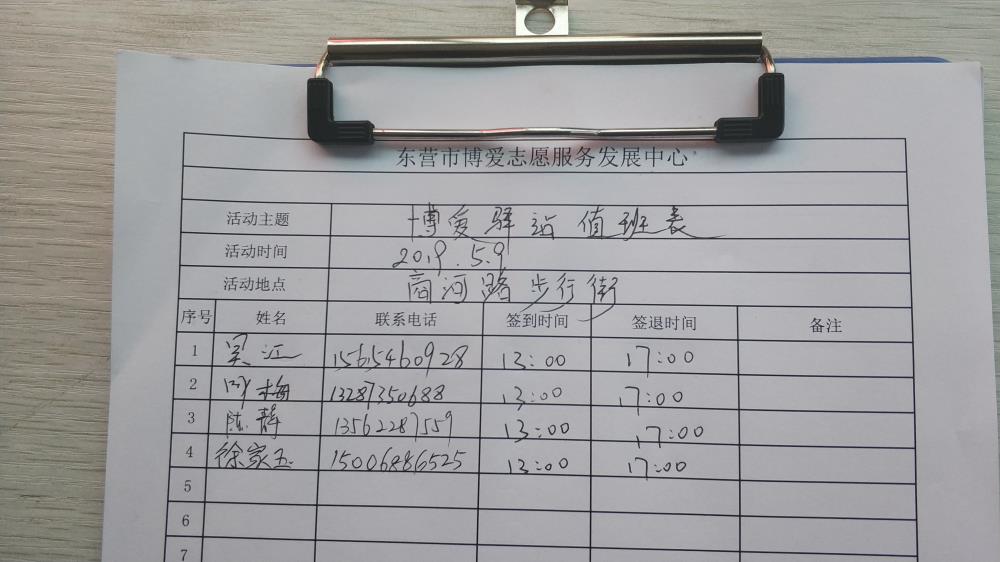 东营市博爱志愿服务发展中心
活动主题 博爱驿站值班表
活动时间 2019.5.9
活动地点 商河路步行街
序号 姓名 联系电话 签到时间 签退时间 备注
1 吴江 15615460928 13:00 17:00
2 梅 13287350688 13:00 17:00
3 陈静 13562287559 13:00 17:00
4 徐家玉 15006886525 13:00 17:00
5
6
7